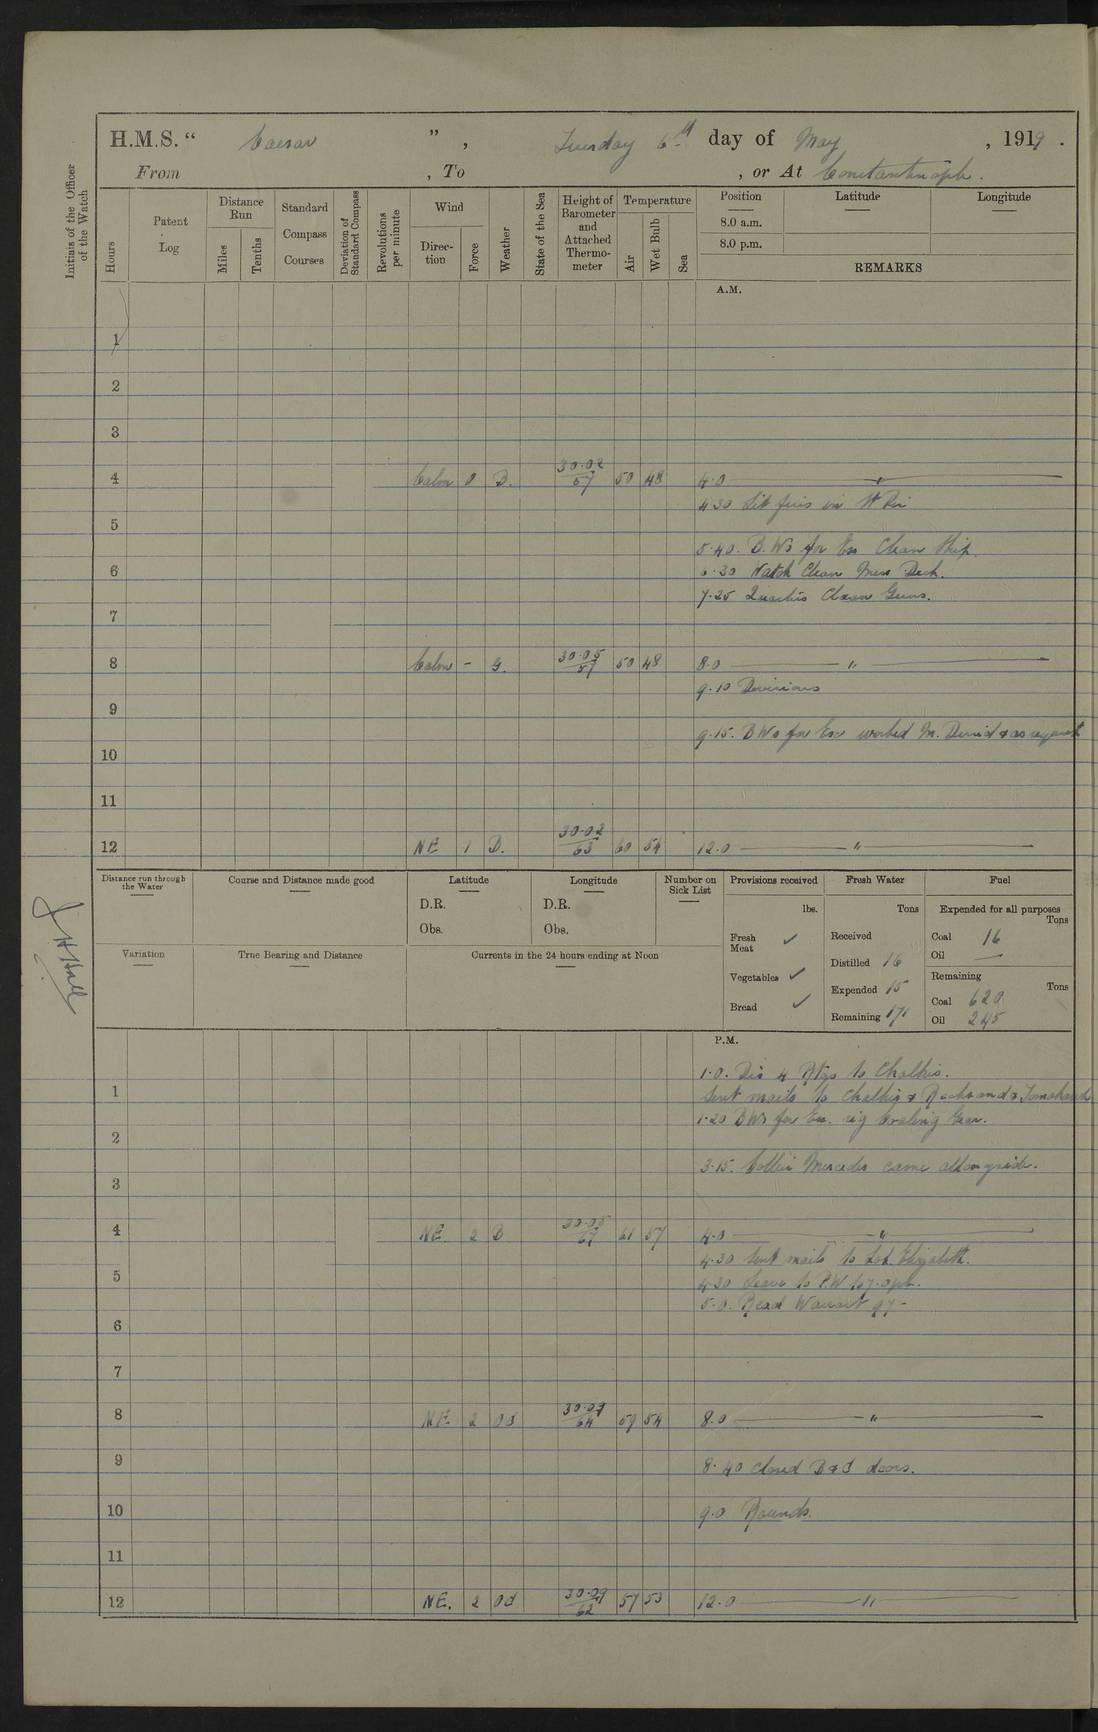 H.M.S. “ Caesar ” , Tuesday 6th day of May , 1919 .
From , To , or At Constantinople .
Initials of the Officer of the Watch
Hours
Patent Log
Distance Run
Miles
Tenths
Standard Compass Courses
Deviation of Standard Compass
Revolutions per minute
Wind
Direc- tion
Force
Weather
State of the Sea
Height of Barometer and Attached Thermo- meter
Temperature
Air
Wet Bulb
Sea
Position Latitude Longitude
8.0 a.m.
8.0 p.m.
REMARKS
A.M.
1
2
3
4 Calm 0 B. 30.02 57 50 48 4.0 "
4.30 Lit fires in
5
5.40. B.Ws for Ex Clean Ship.
6 6.30 Watch Clean Mess Deck.
7.25 Quarters Clean Guns.
7
8 Calm - G. 30.05 57 50 48 8.0 "
9.10 Divisions
9
9.15. BWs for Exe worked M. Denid & as requisite
10
11
12 NE 1 B. 30.02 63 60 54 12.0 "
Distance run through the Water
Course and Distance made good
Latitude
D.R.
Obs.
Longitude
D.R.
Obs.
Number on Sick List
Provisions received
lbs.
Fresh Meat ✓
Vegetables ✓
Bread ✓
Fresh Water
Tons
Received
Distilled 16
Expended 15
Remaining 171
Fuel
Expended for all purposes
Tons
Coal 16
Oil —
Remaining
Tons
Coal 620
Oil 245
Variation
True Bearing and Distance
Currents in the 24 hours ending at Noon
J H Hall
P.M.
1.0. Dis 4 Rtgs to Chalkis.
1 Sent mails to Chalkis & & Tomahawk
1.20 BWs for Ex. rig Coaling Gear.
2
3.15. Collier Mercedes came alongside.
3
4 NE. 2 B 30.05 67 61 57 4.0 "
4.30 Sent mails to Elizabeth.
5 4.30 Leave to P.W to 7.0pm.
5.0. Read Warrant 97 -
6
7
8 NE 2 Od 30.07 64 59 54 8.0 "
9 8.40 closed B & C doors.
10 9.0 Rounds.
11
12 NE. 2 Od 30.09 62 57 53 12.0 "